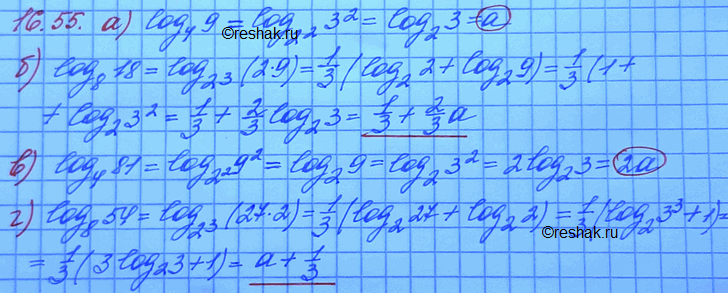 16.55. а) log₄ 9 = log₂² 3² = log₂ 3 = a
©reshak.ru
б) log₈ 18 = log₂³ (2·9) = 1/3 (log₂ 2 + log₂ 9) = 1/3 (1 +
+ log₂ 3² = 1/3 + 2/3 log₂ 3 = 1/3 + 2/3 a
в) log₄ 81 = log₂² 9² = log₂ 9 = log₂ 3² = 2 log₂ 3 = 2a
г) log₈ 54 = log₂³ (27·2) = 1/3 (log₂ 27 + log₂ 2) = 1/3 (log₂ 3³ + 1) =
©reshak.ru
= 1/3 (3 log₂ 3 + 1) = a + 1/3